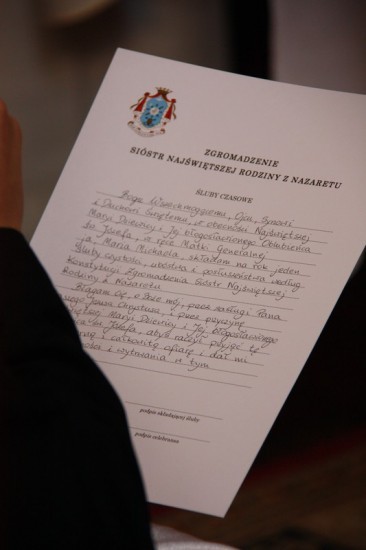 ZGROMADZENIE
SIÓSTR NAJŚWIĘTSZEJ RODZINY Z NAZARETU
ŚLUBY CZASOWE
Bogu Wszechmogącemu, Ojcu, Synowi
i Duchowi Świętemu, w obecności Najświętszej
Maryi Dziewicy i Jej błogosławionego Oblubieńca
św. Józefa, w ręce Matki Generalnej
ja, Maria Michaela składam na rok jeden
śluby czystości, ubóstwa i posłuszeństwa według
Konstytucji Zgromadzenia Sióstr Najświętszej
Rodziny z Nazaretu
Błagam Cię, o Boże mój, przez zasługi Pana
Jezusa Chrystusa, i przez przyczynę
Maryi Dziewicy i Jej błogosławionego
Józefa, abyś raczył przyjąć tę
i całkowitą ofiarę i dał mi
i wytrwania w tym
podpis składającej śluby
podpis celebransa